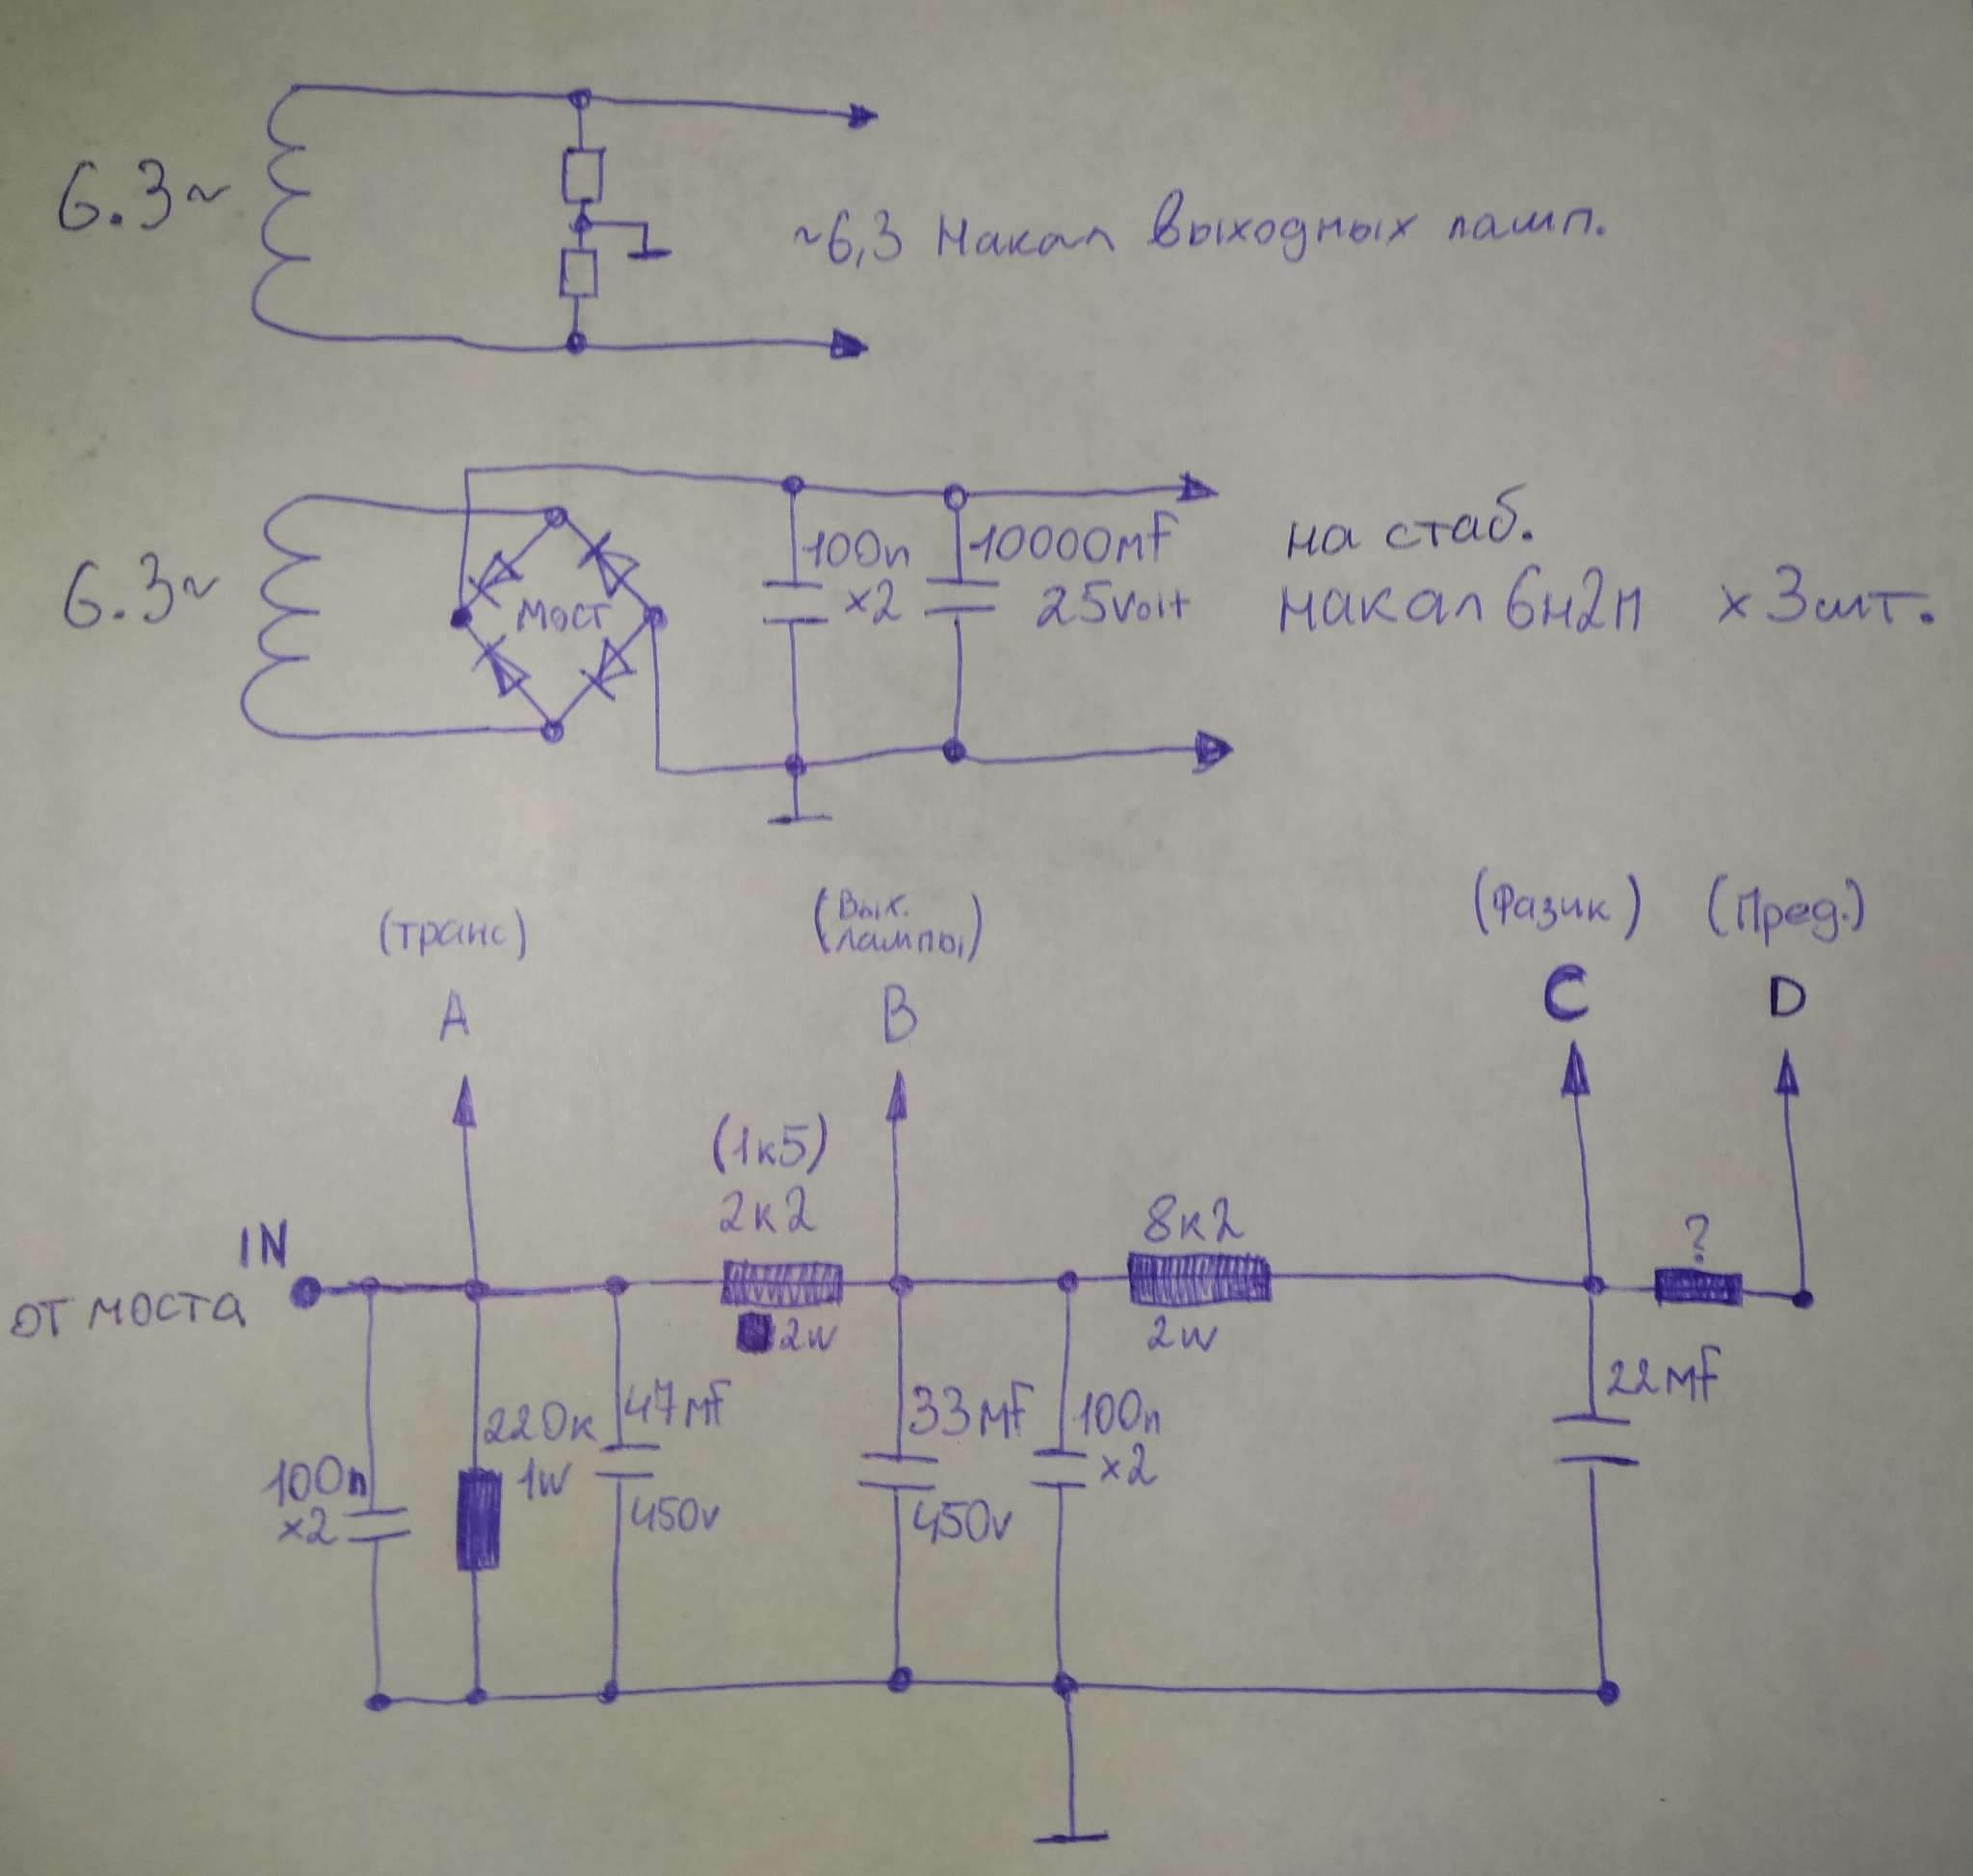 6.3~
~6,3 Накал выходных ламп.
6.3~
Мост
100n
x2
10000mF
25volt
на стаб.
накал 6н2п x3шт.
(транс)
A
(Вых.
лампы)
B
(Фазик)
C
(Пред.)
D
IN
от моста
(1к5)
2к2
2w
8к2
2w
?
100n
x2
220к
1w
47mF
450v
33mF
450v
100n
x2
22mF